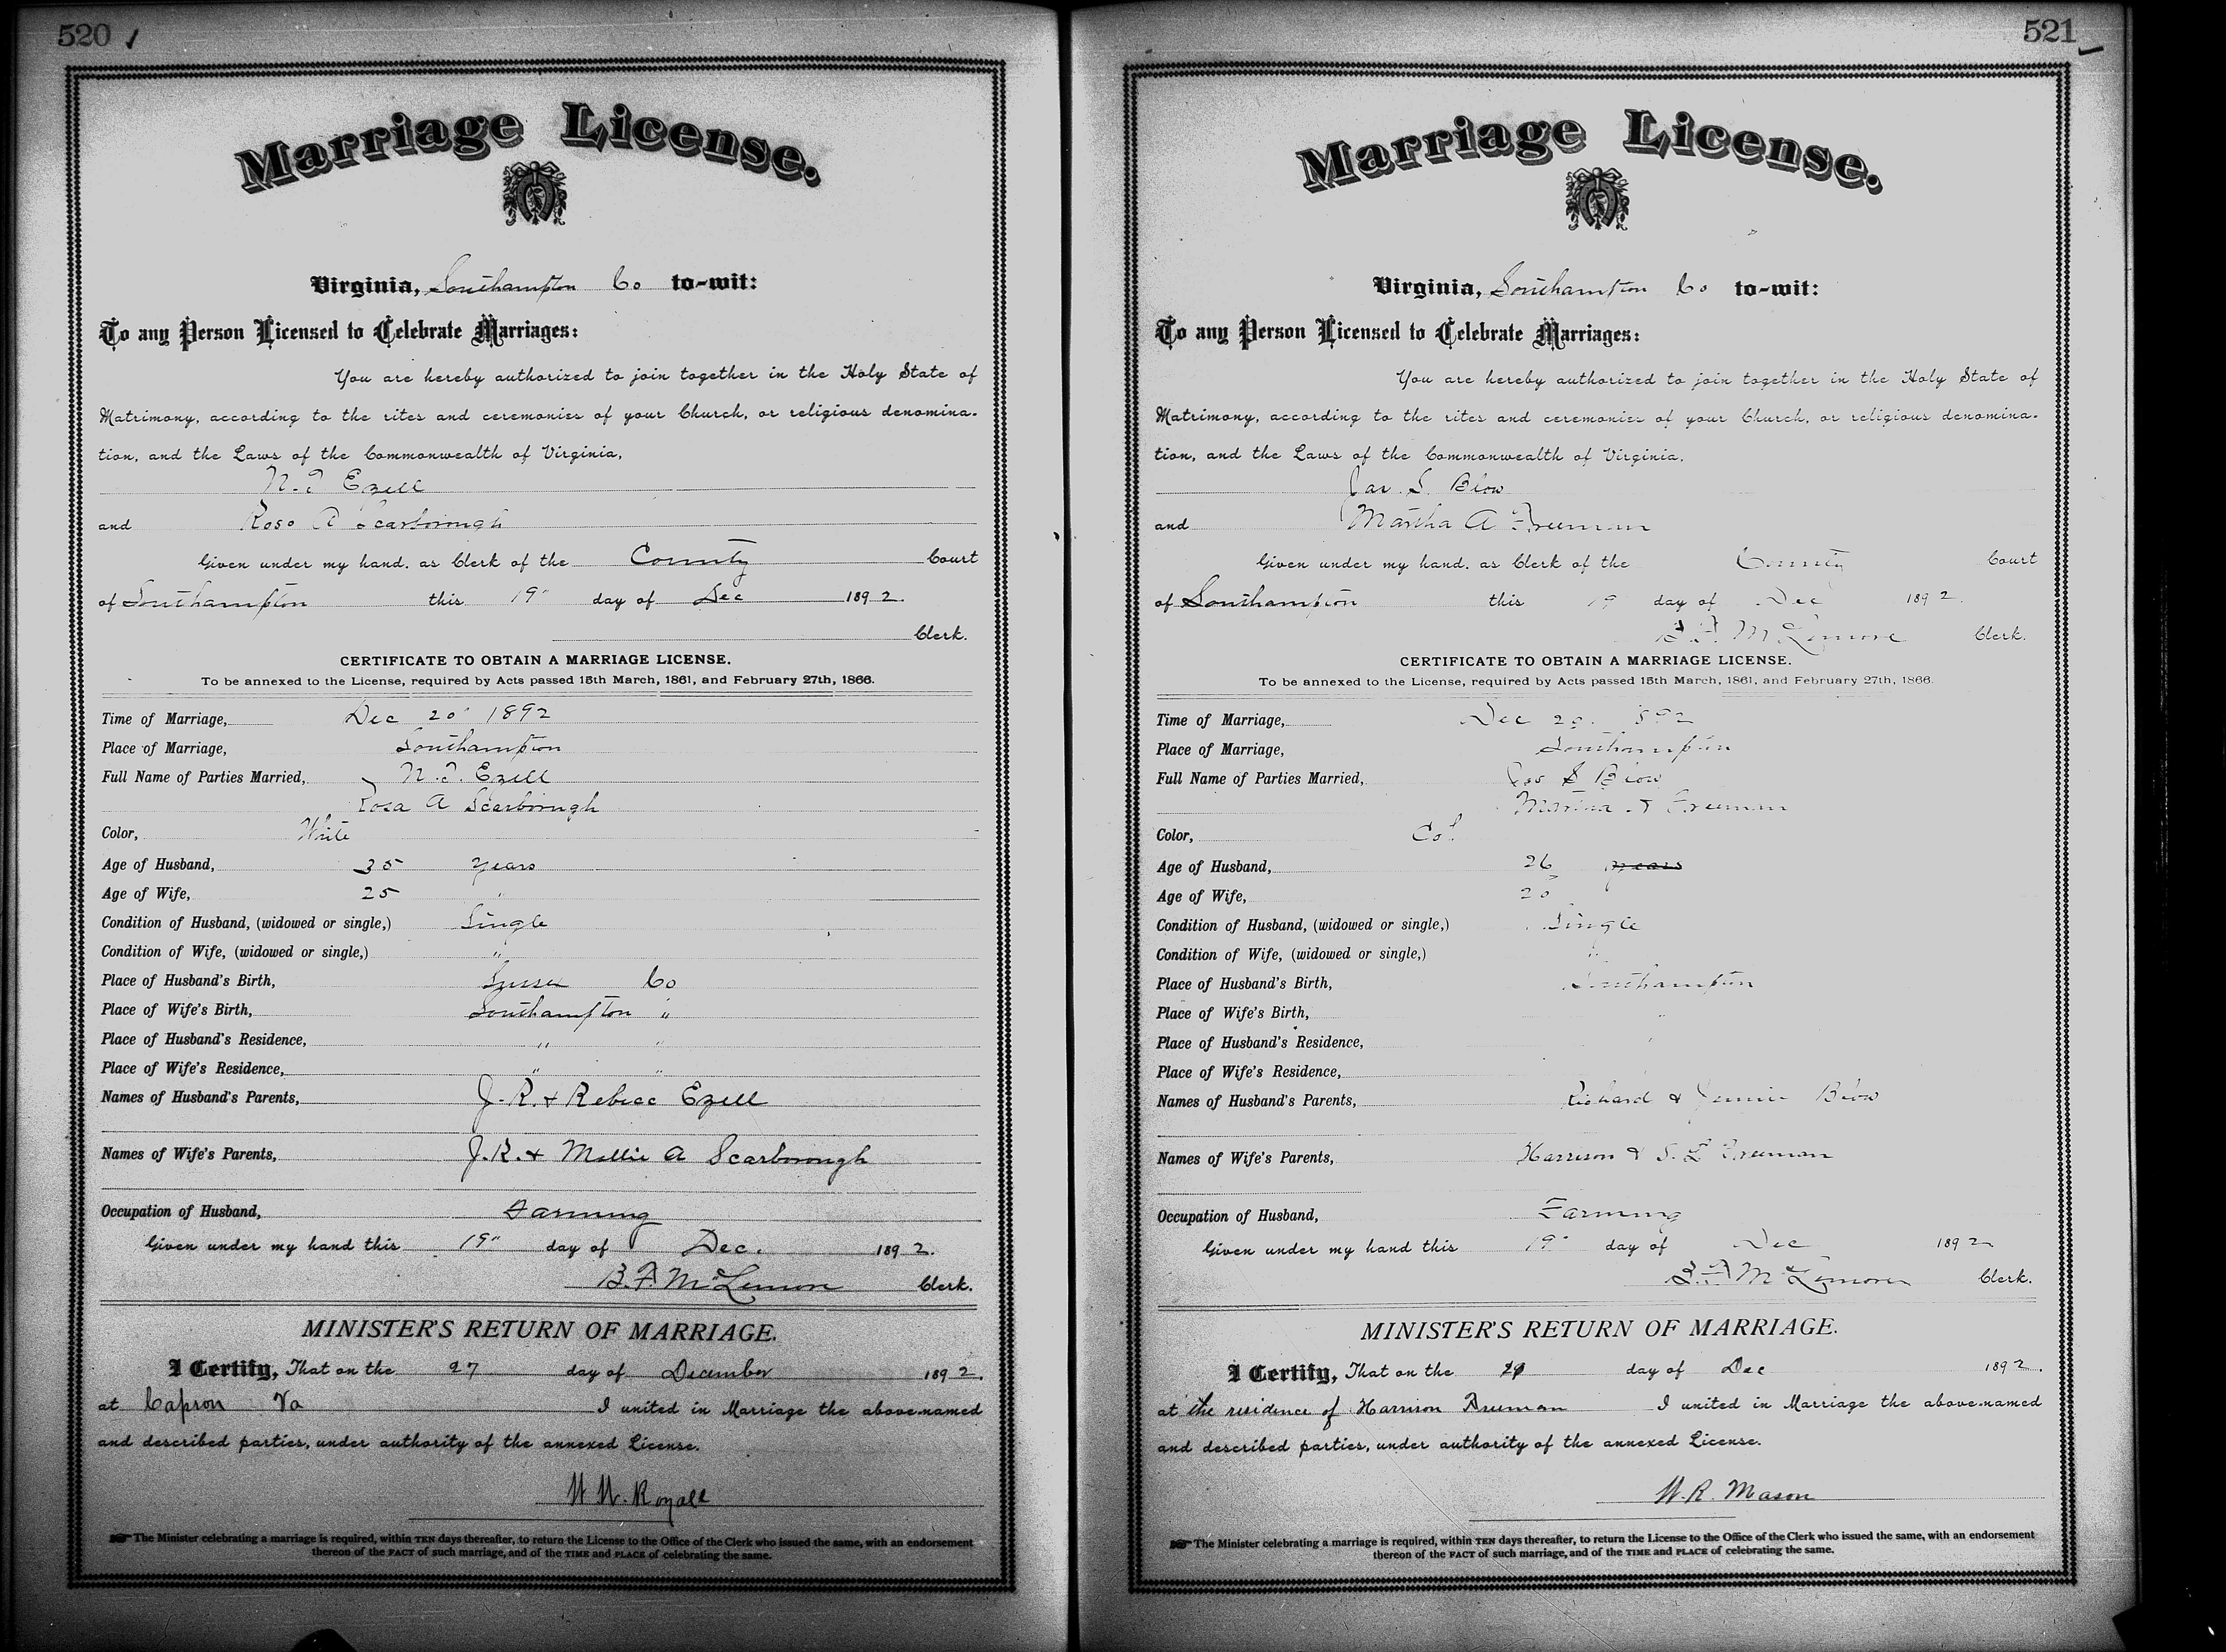 520
Marriage License.
Virginia, Southampton Co to-wit:
To any Person Licensed to Celebrate Marriages:
You are hereby authorized to join together in the Holy State of
Matrimony, according to the rites and ceremonies of your Church, or religious denomina-
tion, and the Laws of the Commonwealth of Virginia,
N. T. Ezell
and Rosa A Scarborough
Given under my hand, as Clerk of the County Court
of Southampton this 19" day of Dec 1892.
Clerk.
CERTIFICATE TO OBTAIN A MARRIAGE LICENSE.
To be annexed to the License, required by Acts passed 15th March, 1861, and February 27th, 1866.
Time of Marriage, Dec 20" 1892
Place of Marriage, Southampton
Full Name of Parties Married, N. T. Ezell
Rosa A Scarborough
Color, White
Age of Husband, 35 years
Age of Wife, 25 "
Condition of Husband, (widowed or single,) Single
Condition of Wife, (widowed or single,) "
Place of Husband's Birth, Sussex Co
Place of Wife's Birth, Southampton "
Place of Husband's Residence, " "
Place of Wife's Residence, " "
Names of Husband's Parents, J. R. & Rebecc Ezell
Names of Wife's Parents, J. R. & Mollie A Scarborough
Occupation of Husband, Farming
Given under my hand this 19" day of Dec. 1892.
B. F. McLemore Clerk.
MINISTER'S RETURN OF MARRIAGE.
I Certify, That on the 27 day of December 1892.
at Capron Va I united in Marriage the above-named
and described parties, under authority of the annexed License.
W. W. Royall
The Minister celebrating a marriage is required, within TEN days thereafter, to return the License to the Office of the Clerk who issued the same, with an endorsement
thereon of the FACT of such marriage, and of the TIME and PLACE of celebrating the same.
521
Marriage License.
Virginia, Southampton Co to-wit:
To any Person Licensed to Celebrate Marriages:
You are hereby authorized to join together in the Holy State of
Matrimony, according to the rites and ceremonies of your Church, or religious denomina-
tion, and the Laws of the Commonwealth of Virginia,
Jas. S. Blow
and Martha A Freeman
Given under my hand, as Clerk of the County Court
of Southampton this 19 day of Dec 1892.
B. F. McLemore Clerk.
CERTIFICATE TO OBTAIN A MARRIAGE LICENSE.
To be annexed to the License, required by Acts passed 15th March, 1861, and February 27th, 1866.
Time of Marriage, Dec 1892
Place of Marriage, Southampton
Full Name of Parties Married, Jas S Blow
Martha A Freeman
Color, Col.
Age of Husband, 26 years
Age of Wife,
Condition of Husband, (widowed or single,) Single
Condition of Wife, (widowed or single,) "
Place of Husband's Birth, Southampton
Place of Wife's Birth, "
Place of Husband's Residence,
Place of Wife's Residence,
Names of Husband's Parents, Richard & Jennie Blow
Names of Wife's Parents, Harrison & S. E Freeman
Occupation of Husband, Farming
Given under my hand this 19" day of Dec 1892
B. F. McLemore Clerk.
MINISTER'S RETURN OF MARRIAGE.
I Certify, That on the day of Dec 1892.
at the residence of Harrison Freeman I united in Marriage the above-named
and described parties, under authority of the annexed License.
W. R. Mason
The Minister celebrating a marriage is required, within TEN days thereafter, to return the License to the Office of the Clerk who issued the same, with an endorsement
thereon of the FACT of such marriage, and of the TIME and PLACE of celebrating the same.